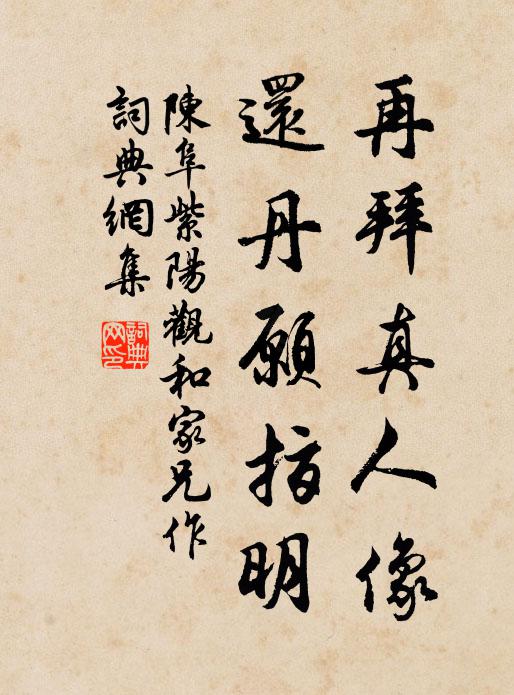 再拜真人像
還丹願指明
陳阜紫陽觀和家兄作
詞典網集
詞典網印